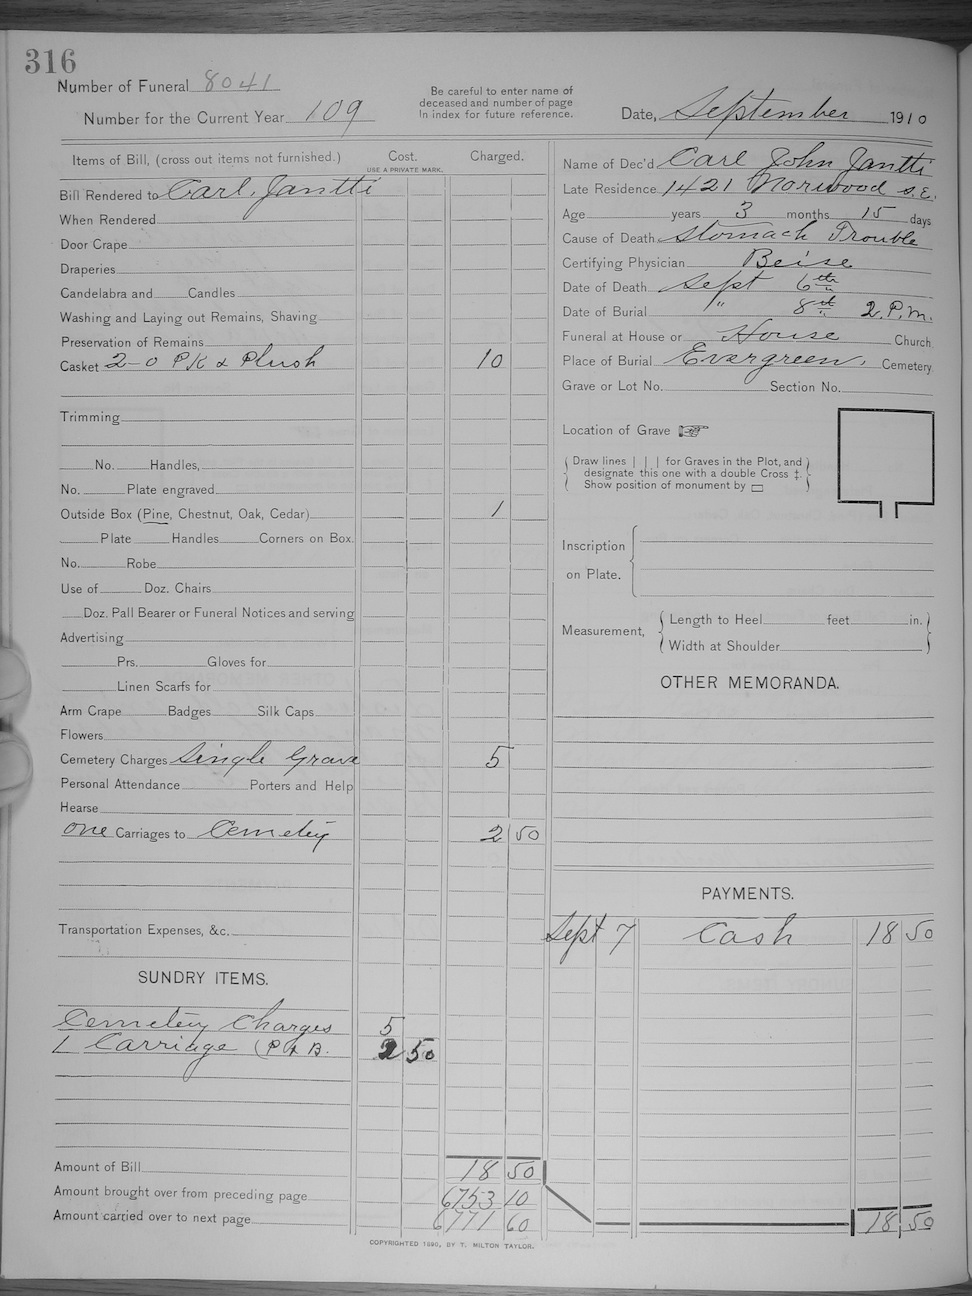 316
Number of Funeral 8041
Number for the Current Year 109
Be careful to enter name of
deceased and number of page
In index for future reference.
Date, September 1910
Items of Bill, (cross out items not furnished.) Cost. Charged.
USE A PRIVATE MARK.
Bill Rendered to Carl Jantti
When Rendered
Door Crape
Draperies
Candelabra and Candles
Washing and Laying out Remains, Shaving
Preservation of Remains
Casket 2-0 P.K & Plush 10
Trimming
No. Handles,
No. Plate engraved
Outside Box (Pine, Chestnut, Oak, Cedar) 1
Plate Handles Corners on Box.
No. Robe
Use of Doz. Chairs
Doz. Pall Bearer or Funeral Notices and serving
Advertising
Prs. Gloves for
Linen Scarfs for
Arm Crape Badges Silk Caps
Flowers
Cemetery Charges Single Grave 5
Personal Attendance Porters and Help
Hearse
one Carriages to Cemetery 2 50
Transportation Expenses, &c.
SUNDRY ITEMS.
Cemetery Charges 5
1 Carriage (P & B. 2 50
Amount of Bill 18 50
Amount brought over from preceding page 6753 10
Amount carried over to next page 6771 60
COPYRIGHTED 1890, BY T. MILTON TAYLOR.
Name of Dec'd Carl John Jantti
Late Residence 1421 Norwood S.E.
Age years 3 months 15 days
Cause of Death Stomach Trouble
Certifying Physician Beise
Date of Death Sept 6th
Date of Burial " 8th 2 P.M.
Funeral at House or House Church
Place of Burial Evergreen, Cemetery
Grave or Lot No. Section No.
Location of Grave ☞
Draw lines | | | for Graves in the Plot, and
designate this one with a double Cross ‡.
Show position of monument by ▭
Inscription
on Plate.
Measurement, Length to Heel feet in.
Width at Shoulder
OTHER MEMORANDA.
PAYMENTS.
Sept 7 Cash 18 50
18 50